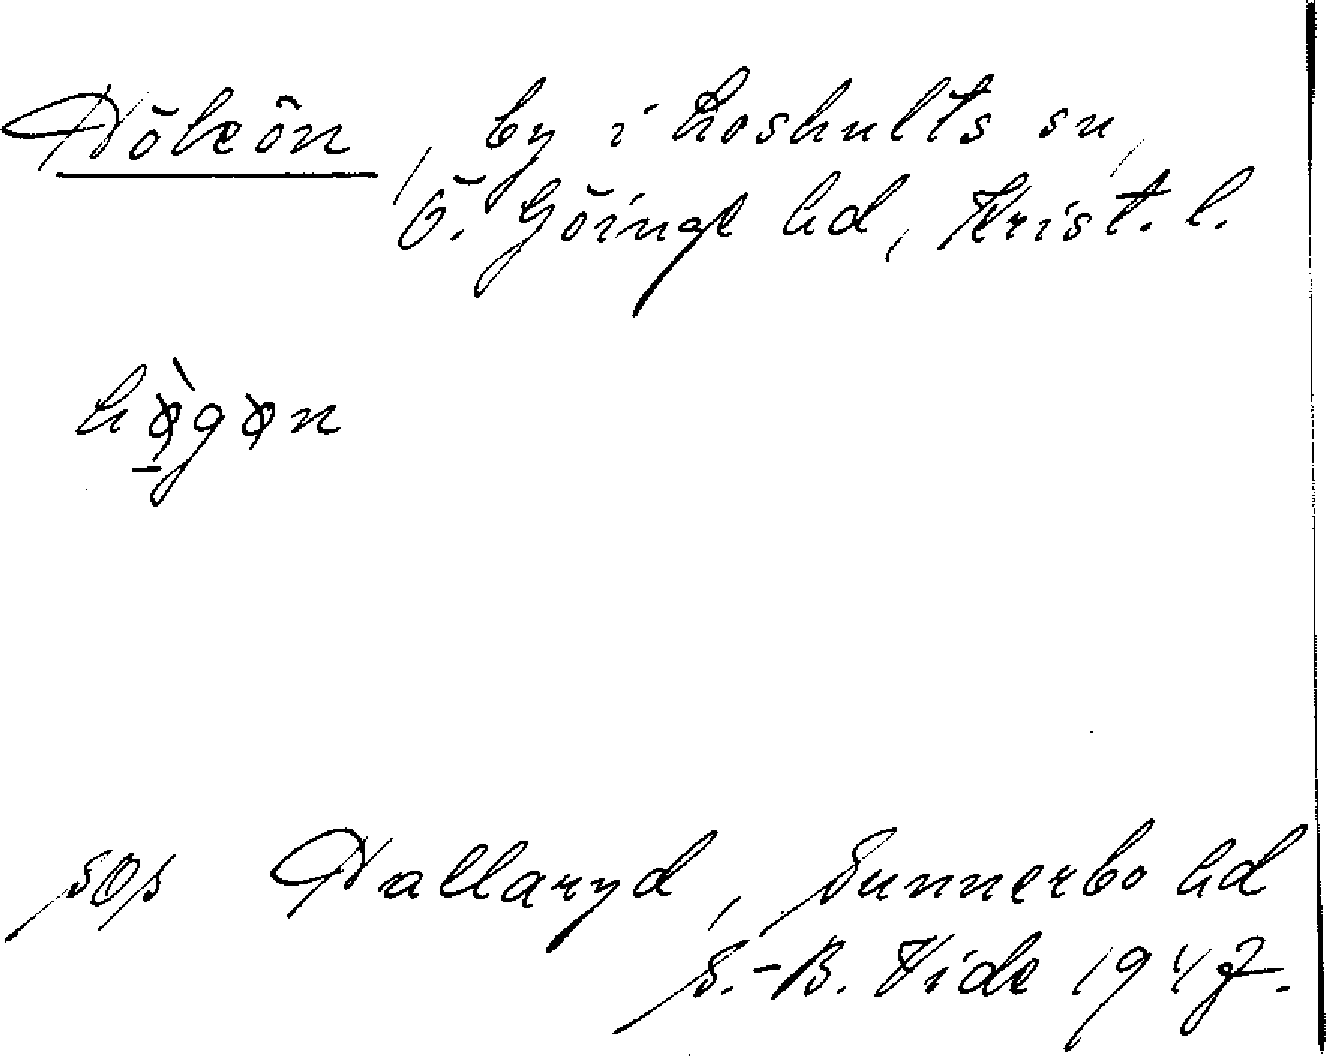 Hökön, by i Loshults sn,
Ö. Göinge hd, Krist. l.
hø̀gøn
sos Hallaryd, Sunnerbo hd
S.-B. Vide 1947.